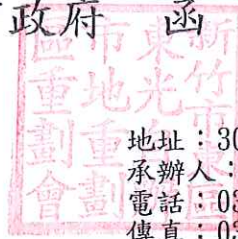 政府 函
新竹市東區
東光
市地重劃
區重劃會
地址：30
承辦人：
電話：03
傳真：03